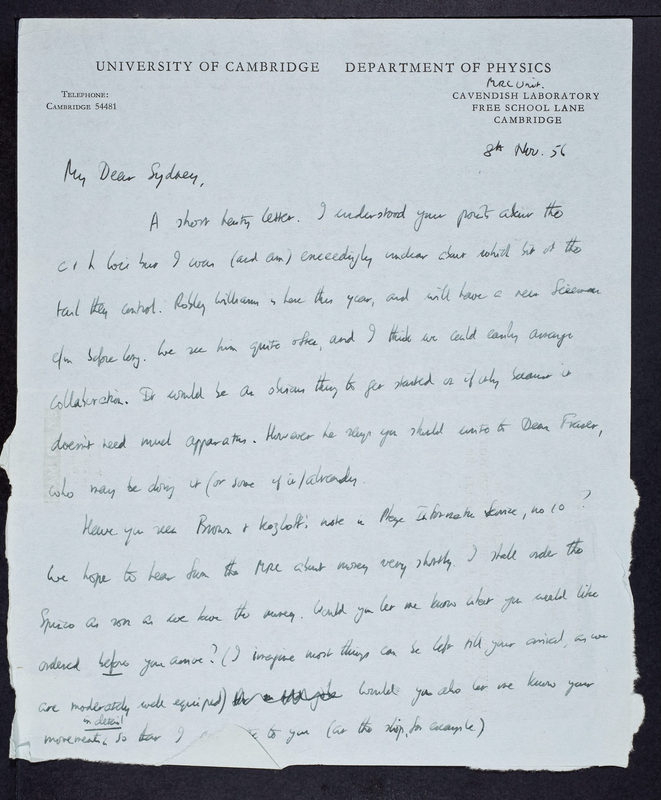 UNIVERSITY OF CAMBRIDGE DEPARTMENT OF PHYSICS
TELEPHONE:
CAMBRIDGE 54481
MRC Unit.
CAVENDISH LABORATORY
FREE SCHOOL LANE
CAMBRIDGE
8th Nov. 56
My Dear Sydney,
A short hasty letter. I understood your points about the
c + h loci but I was (and am) exceedingly unclear about which bit of the
tail they control. Robley Williams is here this year, and will have a new Siemens
e/m before long. We see him quite often, and I think we could easily arrange
collaboration. It would be an obvious thing to get started on if only because it
doesn't need much apparatus. However he says you should write to Dean Fraser,
who may be doing it (or some of it) already.
Have you seen Brown + Kozloff's note in Phage Information Service, no 10?
We hope to hear from the MRC about money very shortly. I shall order the
Spinco as soon as we have the money. Would you let me know what you would like
ordered before you arrive? (I imagine most things can be left till your arrival, as we
are moderately well equiped) Would you also let me know your
movements in detail so that I to you (at the ship, for example.)